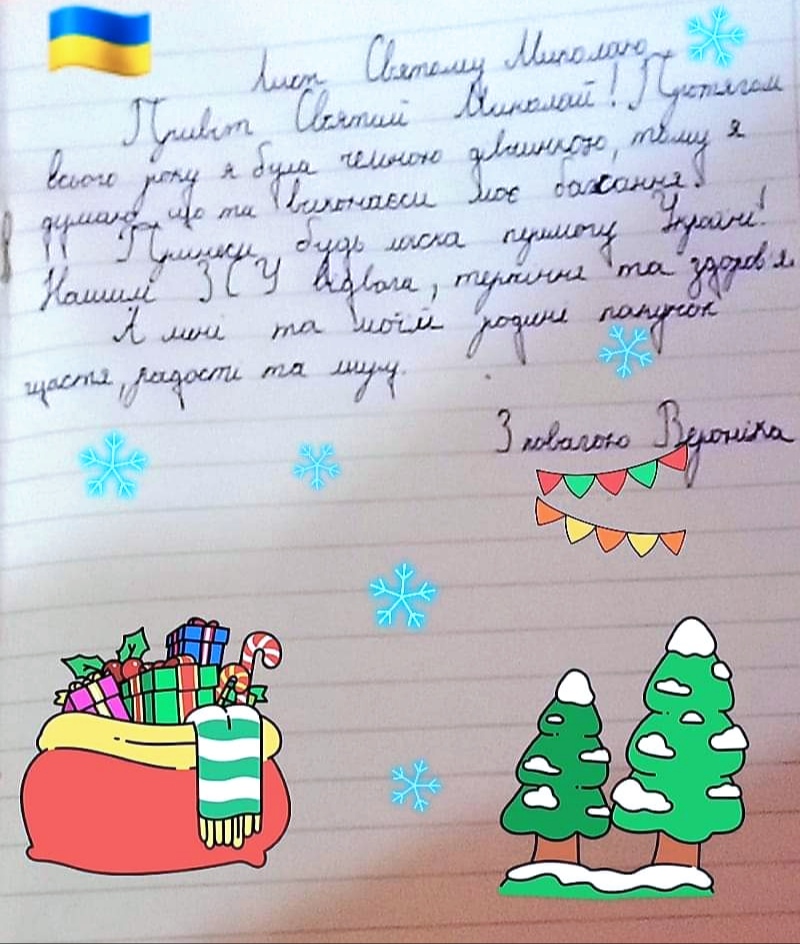 Лист Святому Миколаю
Привіт Святий Миколай! Протягом
всього року я була чемною дівчинкою, тому я
думаю, що ти виконаєш моє бажання.
Принеси, будь ласка перемогу Україні!
Нашим ЗСУ відвага, терпіння та здоров'я.
А мені та моїй родині пакунок
щастя, радості та миру.
З повагою Вероніка